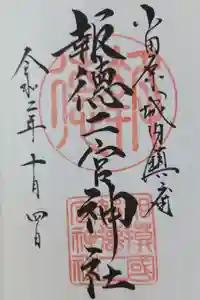 小田原城内鎮座
報徳二宮神社
令和二年十月四日